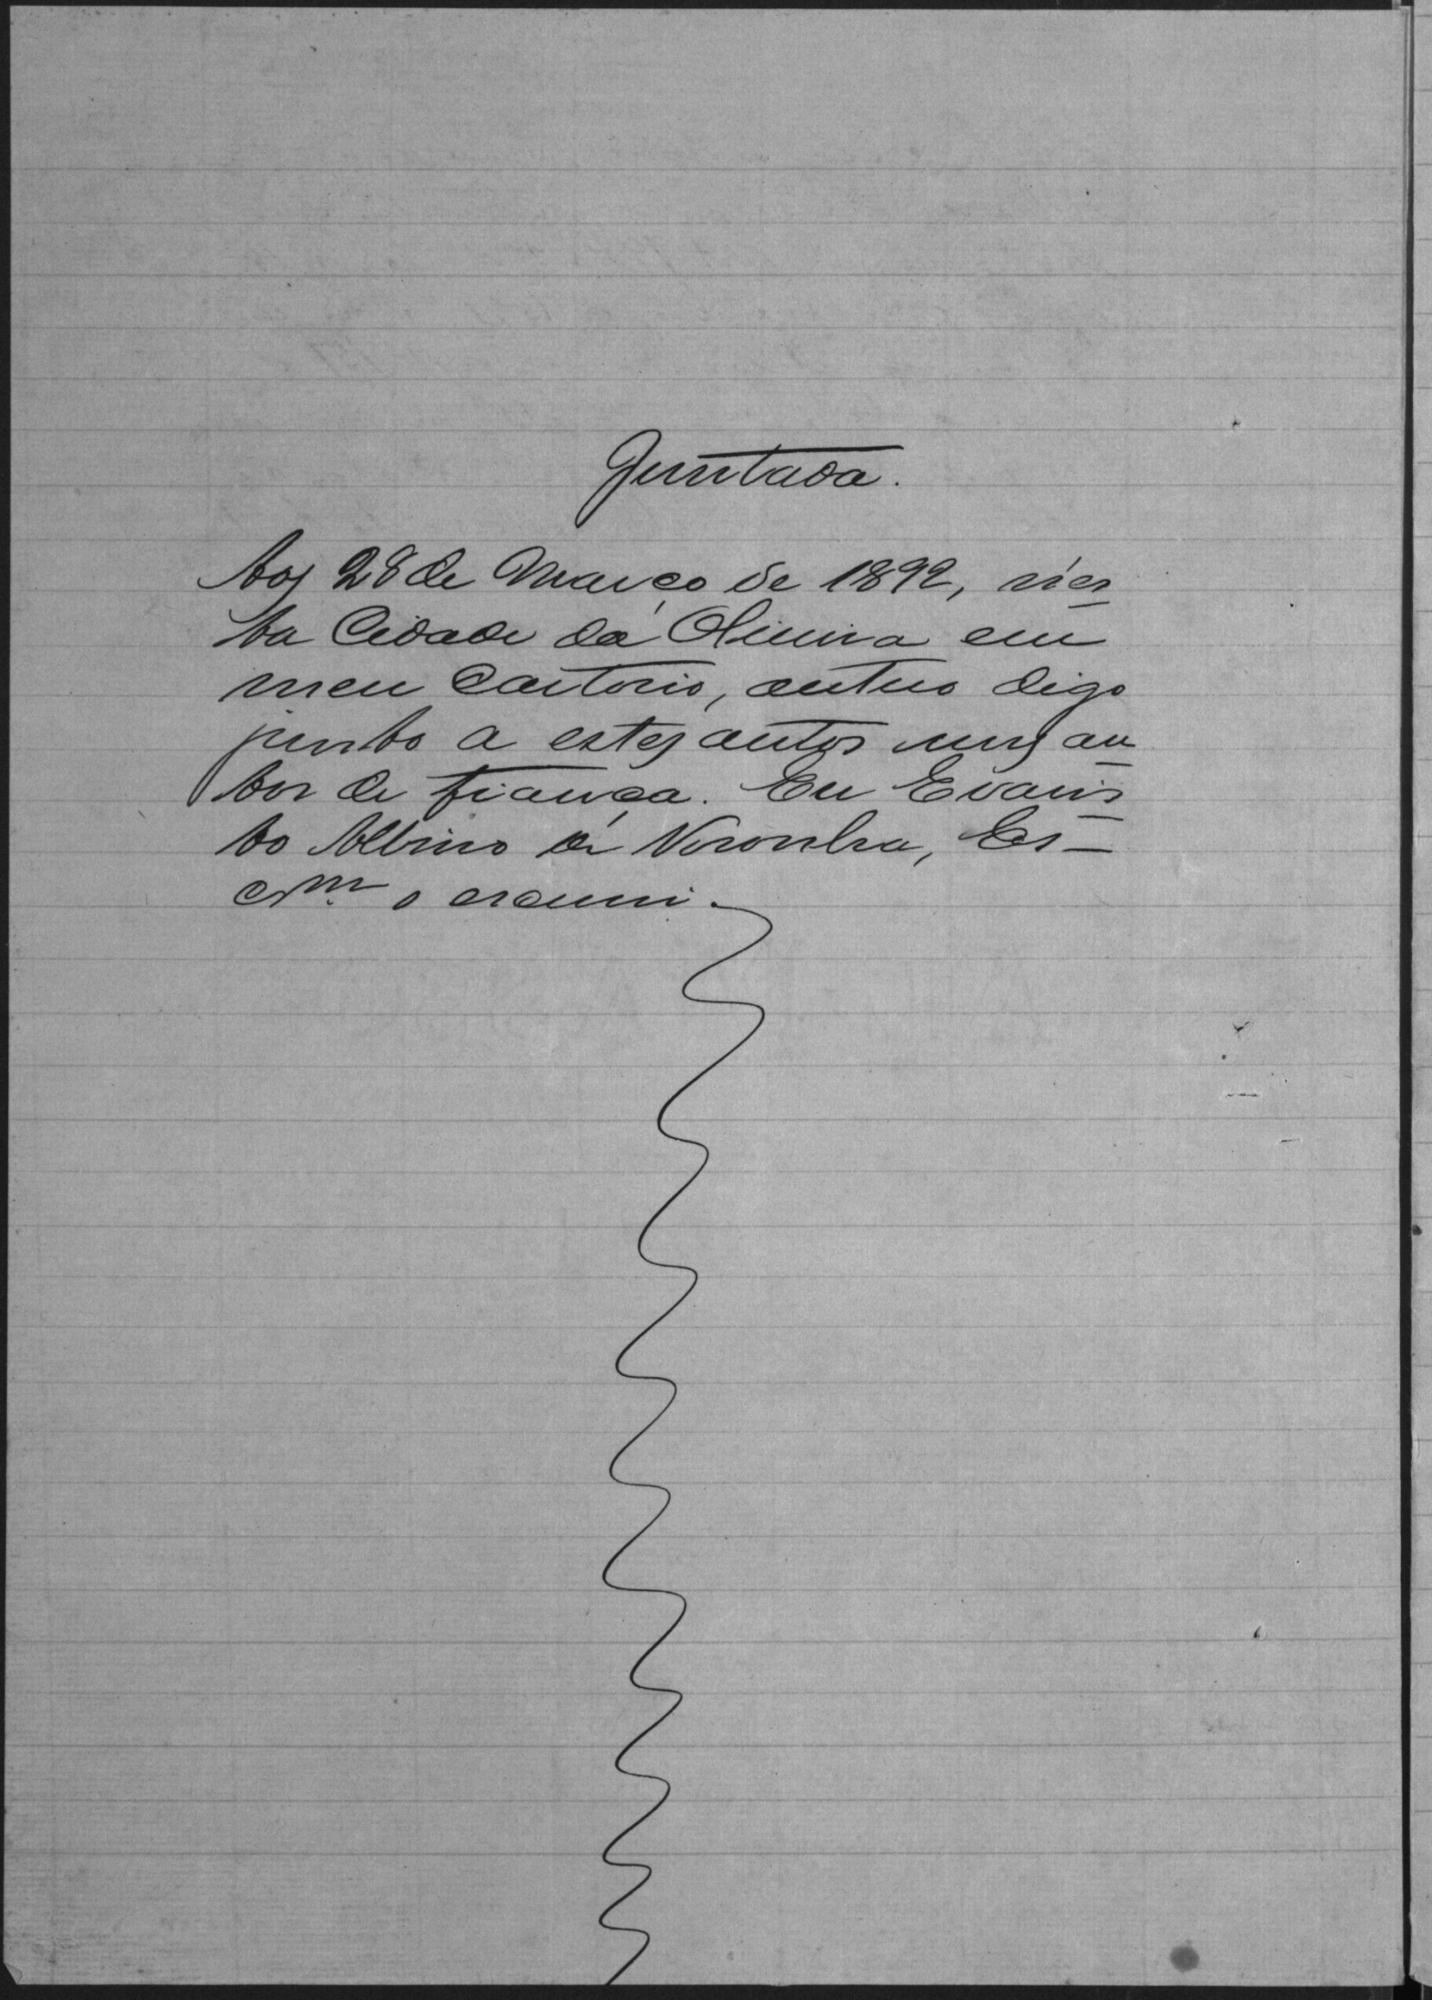 Juntada.
Aos 28 de Março de 1892, nes
ta Cidade da Oliveira em
meu Cartorio, autuo digo
junto a estes autos uns au
tos de fiança. Eu Evaris
to Albino de Noronha, Es-
cr.m o escrevi.